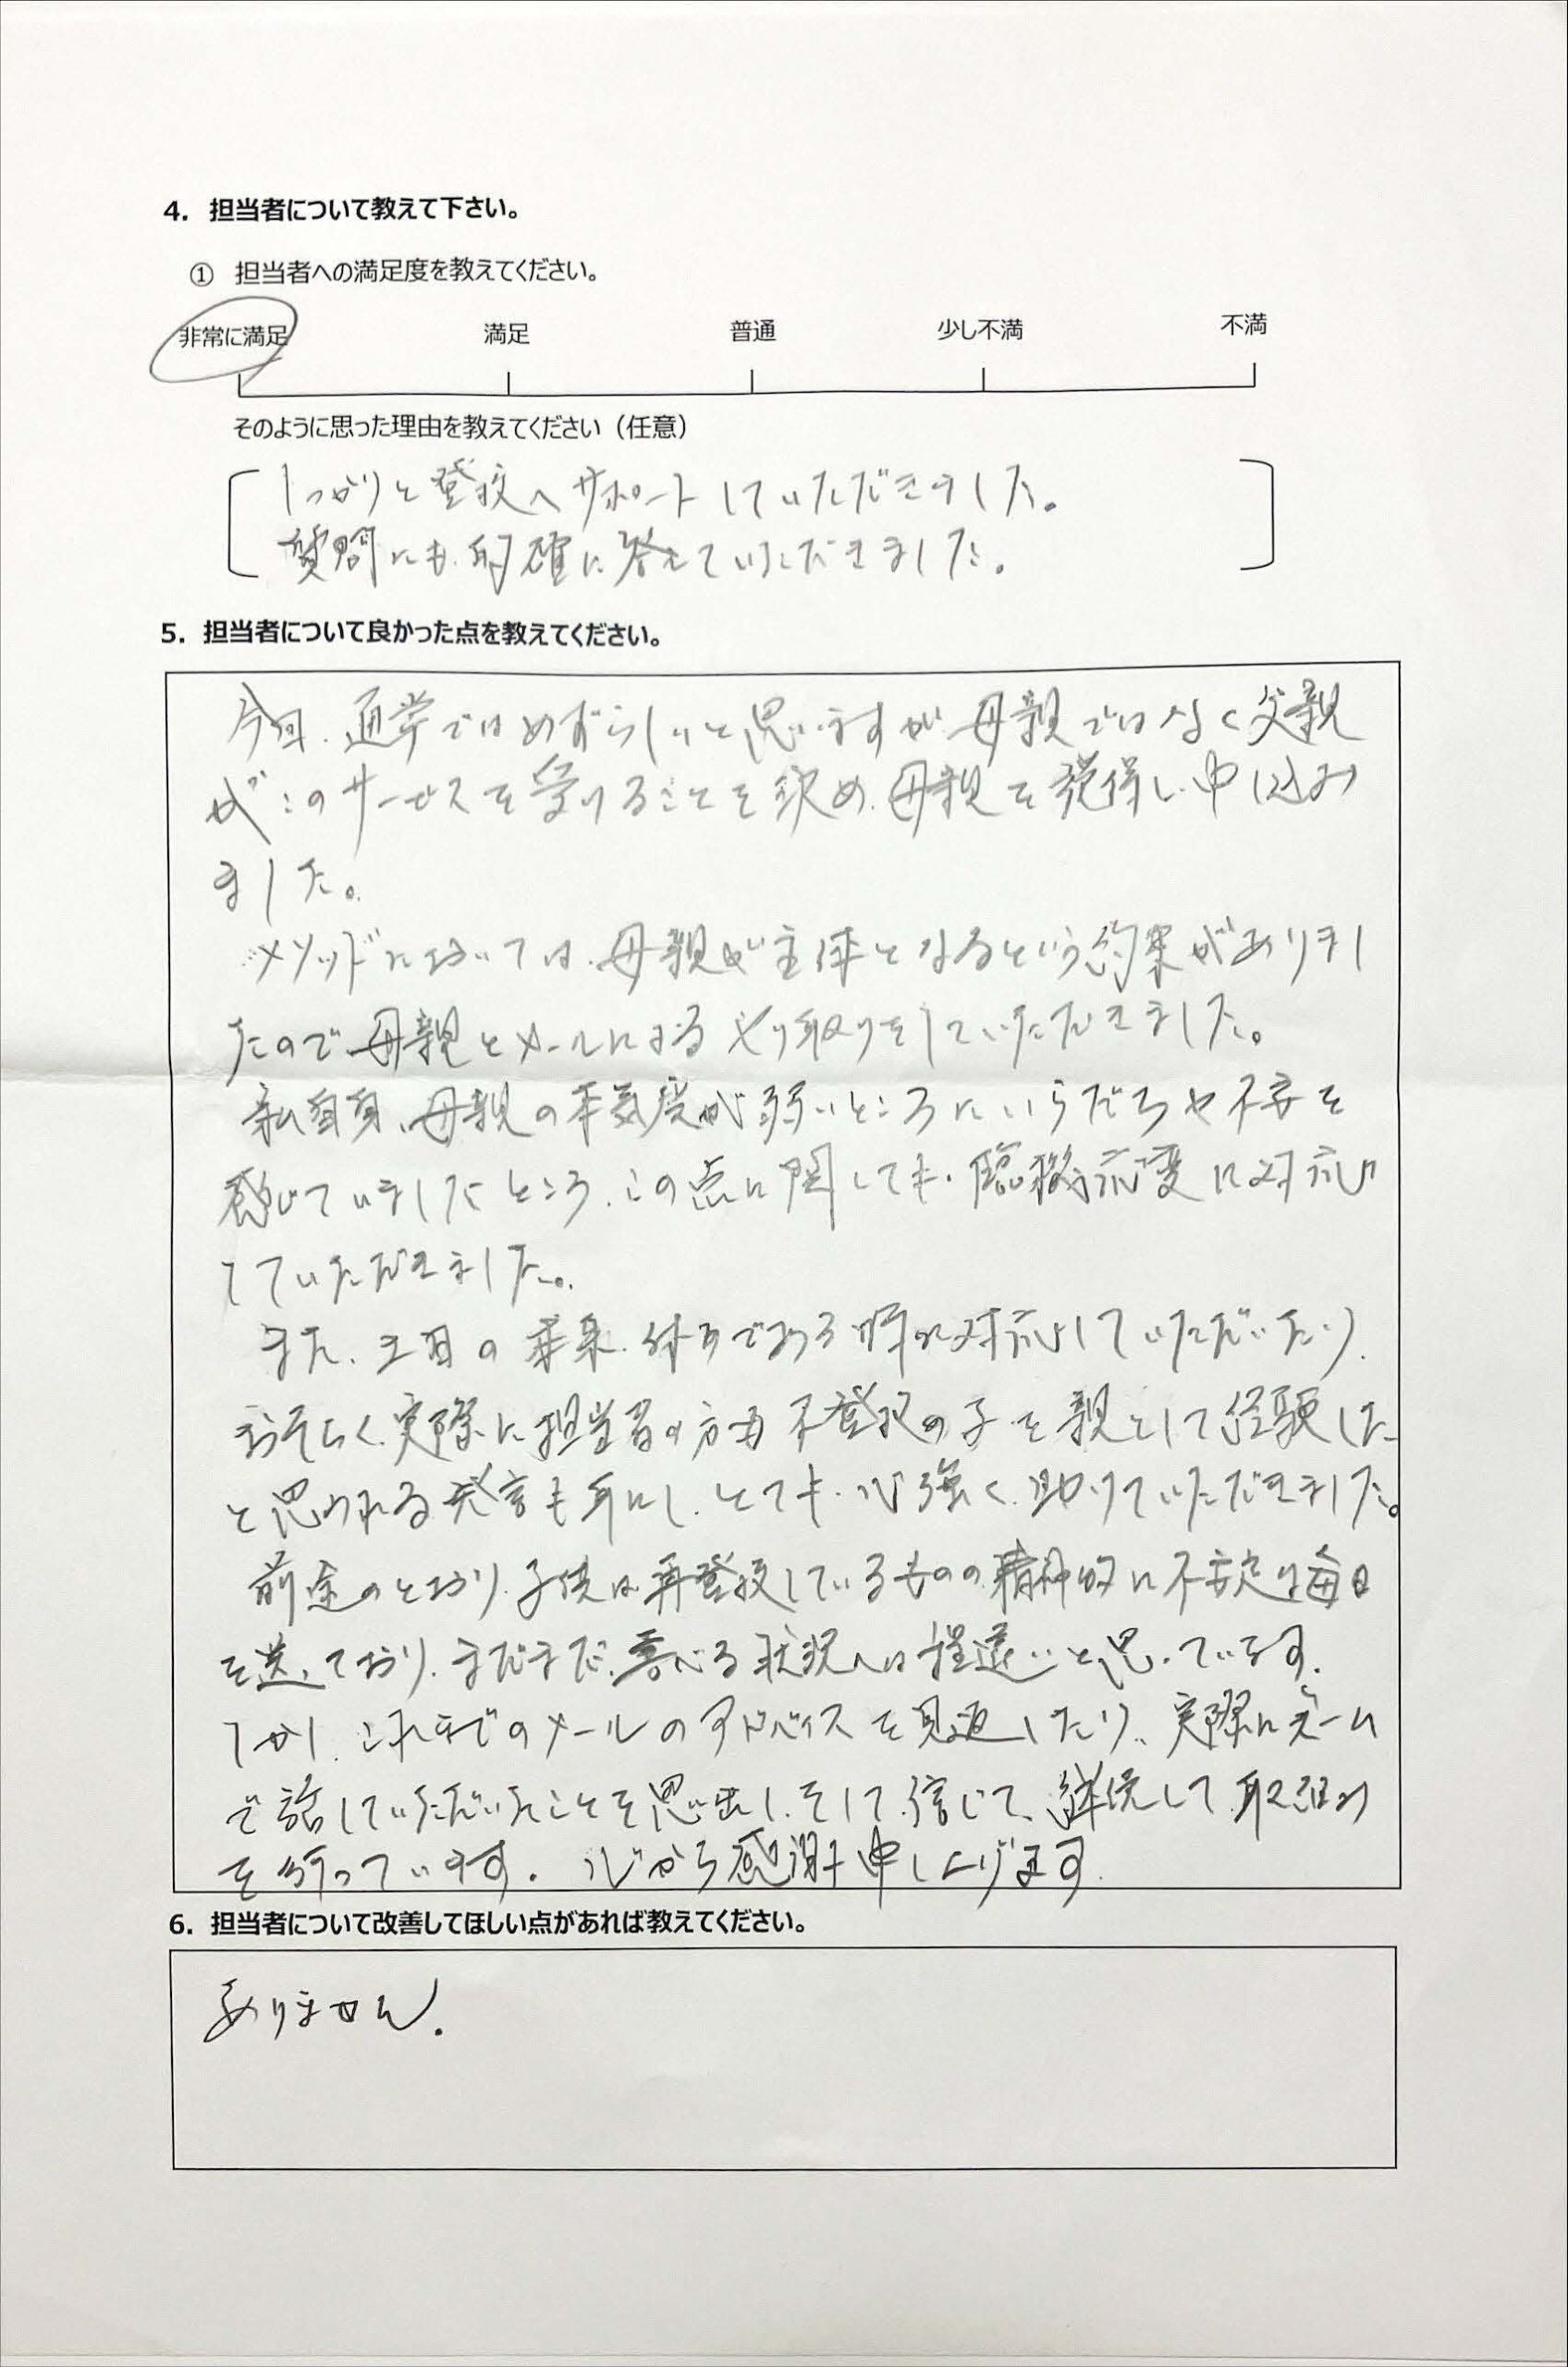 4. 担当者について教えて下さい。
① 担当者への満足度を教えてください。
非常に満足 満足 普通 少し不満 不満
そのように思った理由を教えてください（任意）
しっかりと登校へサポートしていただきました。
質問にも、的確に答えていただきました。
5. 担当者について良かった点を教えてください。
今回、通常ではめずらしいと思いますが、母親ではなく父親
がこのサービスを受けることを決め、母親を説得し、申し込み
ました。
メソッドにおいては、母親が主体となるという約束がありまし
たので、母親とメールによるやり取りをしていただきました。
私自身、母親の本気度が弱いところにいらだちや不安を
感じていましたところ、この点に関しても、臨機応変に対応し
ていただきました。
また、土日の本来、休みである時に対応していただいたり、
おそらく、実際に担当者の方も不登校の子を親として経験した
と思われる発言も耳にし、とても、心強く、助けていただきました。
前途のとおり、子供は再登校しているものの、精神的に不安定な毎日
を送っており、まだまだ、喜べる状況へは程遠いと思っています。
しかし、これまでのメールのアドバイスを見返したり、実際にズーム
で話していただいたことを思い出し、そして、信じて、継続して取組み
を行っています。心から感謝申し上げます。
6. 担当者について改善してほしい点があれば教えてください。
ありません。